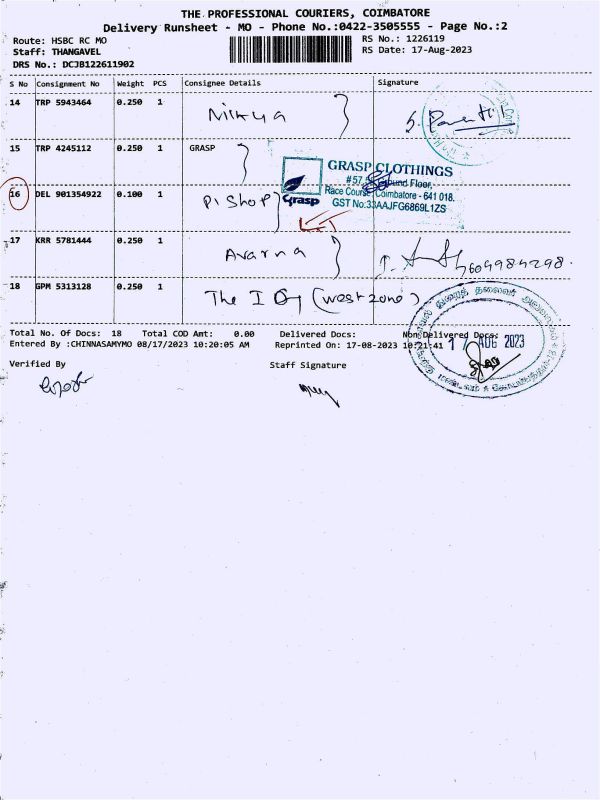 THE PROFESSIONAL COURIERS, COIMBATORE
Delivery Runsheet - MO - Phone No.:0422-3505555 - Page No.:2
Route: HSBC RC MO
RS No.: 1226119
Staff: THANGAVEL
RS Date: 17-Aug-2023
DRS No.: DCJB122611902
S No Consignment No Weight PCS Consignee Details Signature
14 TRP 5943464 0.250 1
15 TRP 4245112 0.250 1 GRASP
GRASP CLOTHINGS
Floor,
Race Course, Coimbatore - 641 018.
GST No:33AAJFG6869L1ZS
Grasp
16 DEL 901354922 0.100 1 Pi Shop
17 KRR 5781444 0.250 1 Avarna
18 GPM 5313128 0.250 1 The I G (west zone)
Total No. Of Docs: 18 Total COD Amt: 0.00 Delivered Docs: Non Delivered Docs:
Entered By :CHINNASAMYMO 08/17/2023 10:20:05 AM Reprinted On: 17-08-2023 10:21:41
17 AUG 2023
Verified By Staff Signature